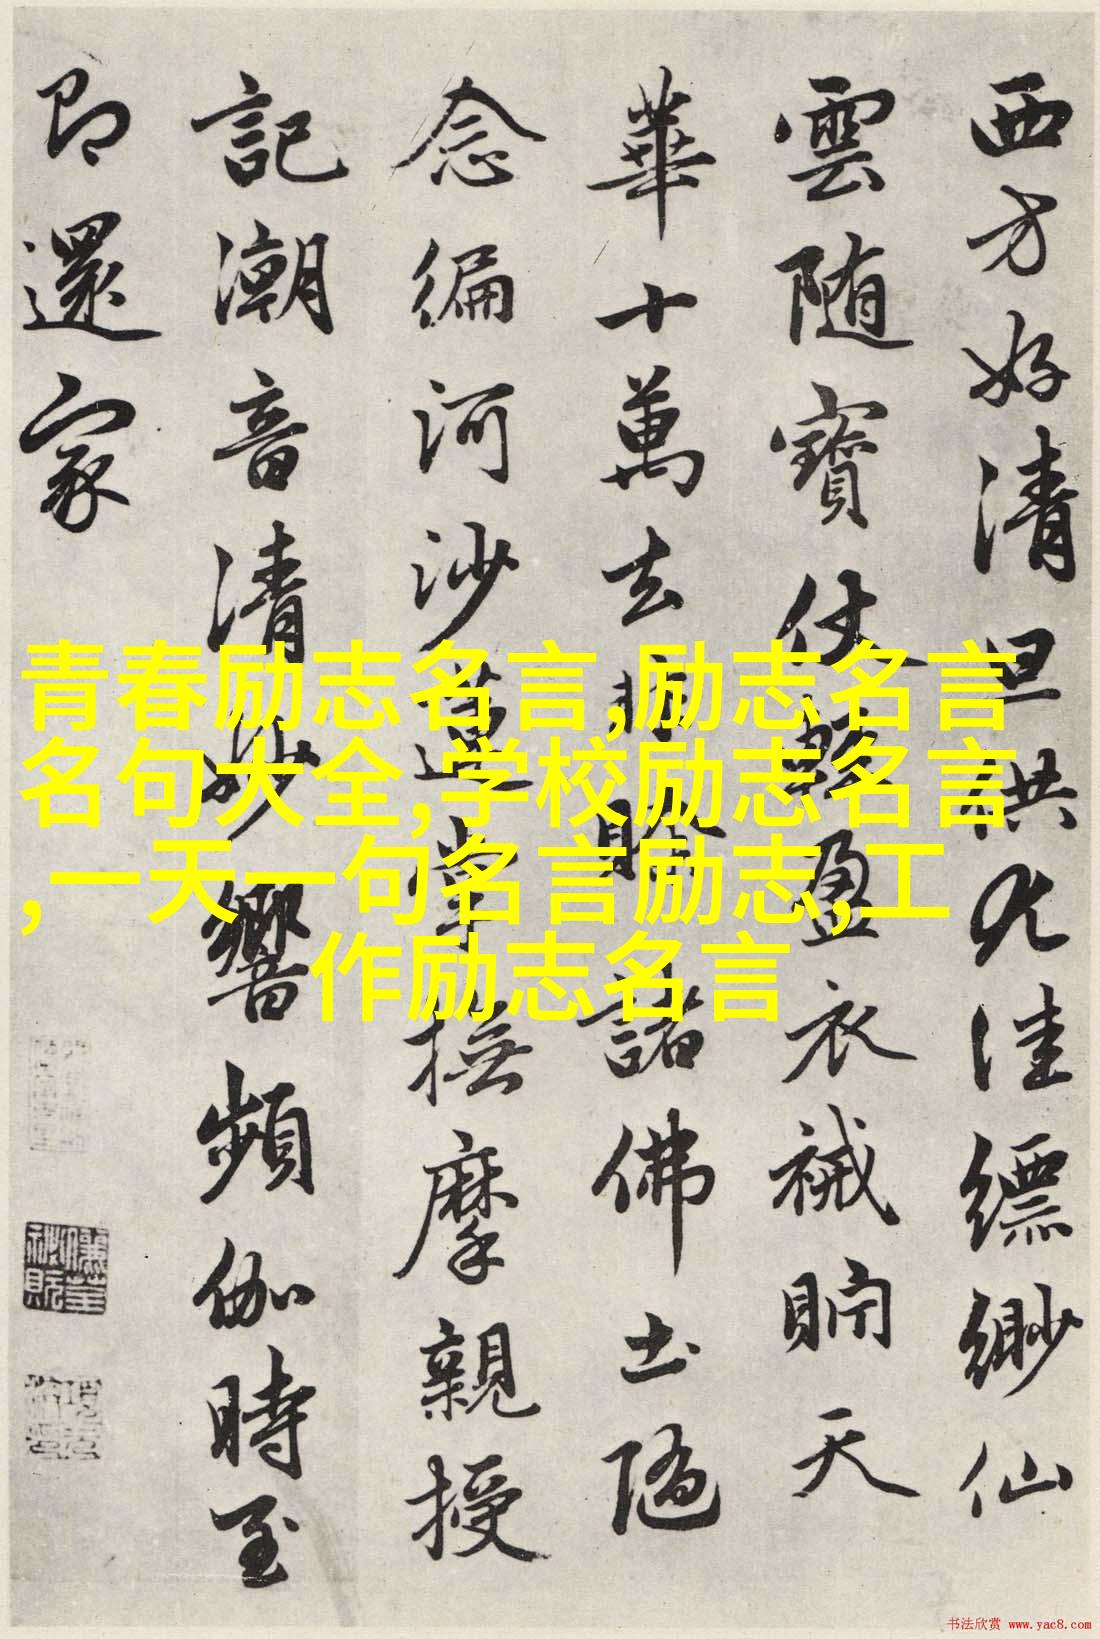 西方好清旦供尤佳縹緲仙
雲随寶仗輕盈衣裓貯天
華十萬去時賒諸佛土随
念徧河沙蓮掌撫摩親授
記潮音清妙響頻伽時至
即還家
青春励志名言,励志名言
名句大全,学校励志名言
,一天一句名言励志,工
作励志名言
书法欣赏 www.yac8.com